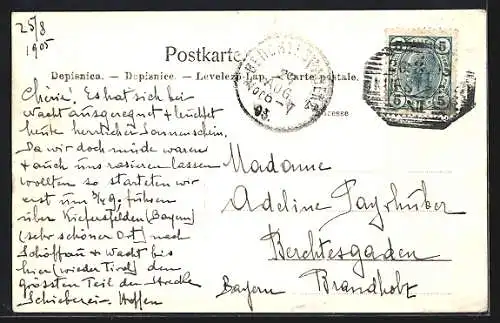 25/8
1905
Postkarte
Depisnica. – Dopisnice. – Levelező-Lap. – Carte postale.
BERCHTESGADEN
AUG
5
5
5
Chérie! Es hat sich bei
Nacht ausgeregnet & leuchtet
heute herrlicher Sonnenschein.
Da wir doch müde waren
& auch uns rasieren lassen
wollten so starteten wir
erst um 3/4 9, fuhren
über Kiefersfelden (Bayern)
(sehr schöner Ort) nach
Schöffau & Wacht bis
hier (wieder Tirol) den
grössten Teil der Strecke
Schieberei. Hoffen
Madame
Adeline Payrhuber
Berchtesgaden
Bayern Brandholz